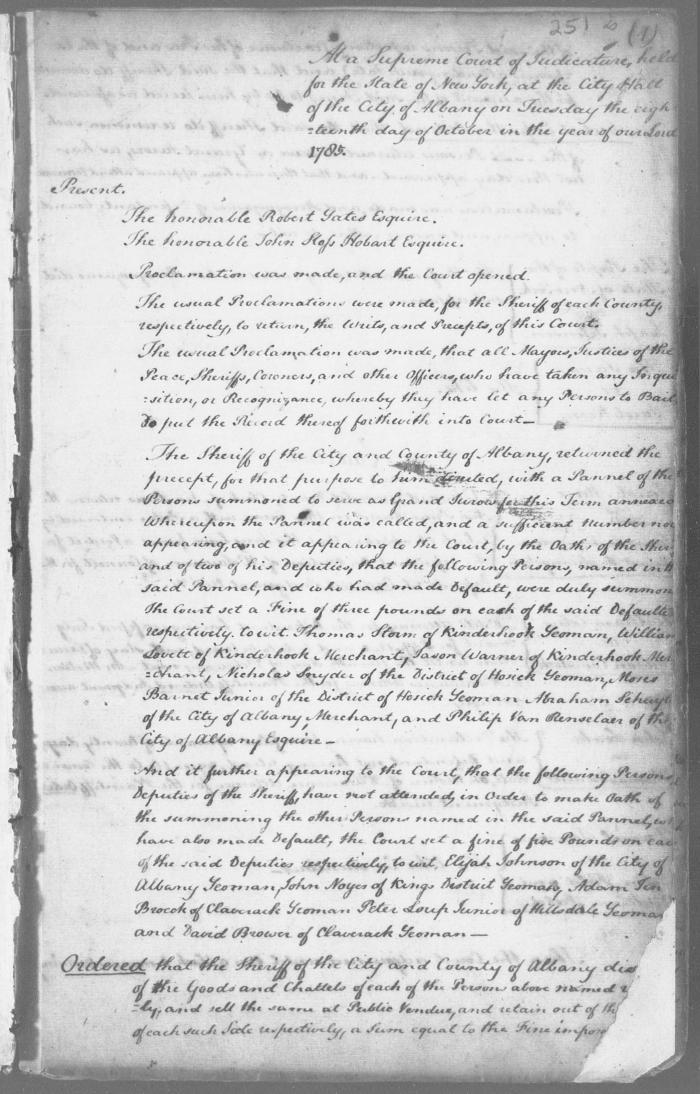 251 (1)
At a Supreme Court of Judicature, held
for the State of New York, at the City Hall
of the City of Albany on Tuesday the eigh
=teenth day of October in the year of our Lord
1785.
Present.
The honorable Robert Yates Esquire.
The honorable John Sloss Hobart Esquire.
Proclamation was made, and the Court opened.
The usual Proclamations were made, for the Sheriff of each County,
respectively, to return, the Writs, and Precepts, of this Court.
The usual Proclamation was made, that all Mayors, Justices of the
Peace, Sheriffs, Coroners, and other Officers, who have taken any Inqui
=sition, or Recognizance, whereby they have let any Persons to Bail,
To put the Record thereof forthwith into Court—
The Sheriff of the City and County of Albany, returned the
precept, for that purpose to him directed, with a Pannel of the
Persons summoned to serve as Grand Jurors for this Term annexed
Whereupon the Pannel was called, and a sufficient Number not
appearing, and it appearing to the Court, by the Oaths of the Sheri
and of two of his Deputies, that the following Persons, named in
said Pannel, and who had made Default, were duly summon
The Court set a Fine of three pounds on each of the said Defaulte
respectively. to wit. Thomas Storm of Kinderhook Yeoman, William
Lovett of Kinderhook Merchant, Jason Warner of Kinderhook Mer
=chant, Nicholas Snyder of the District of Hosick Yeoman, Moses
Barnet Junior of the District of Hosick Yeoman Abraham Schuyl
of the City of Albany, Merchant, and Philip Van Renselaer of the
City of Albany Esquire—
And it further appearing to the Court, that the following Persons
Deputies of the Sheriff, have not attended, in Order to make Oath of
the summoning the other Persons named in the said Pannel,
have also made Default, the Court set a fine of five Pounds on eac
of the said Deputies respectively, to wit, Elijah Johnson of the City of
Albany Yeoman, John Noyes of Kings District Yeoman, Adam Ten
Broeck of Claverack Yeoman Peter Loup Junior of Hillsdale Yeoman
and David Brower of Claverack Yeoman—
Ordered that the Sheriff of the City and County of Albany dis
of the Goods and Chattels of each of the Persons above named
=ly, and sell the same at Public Vendue, and retain out of th
of each such Sale respectively, a Sum equal to the Fine impo